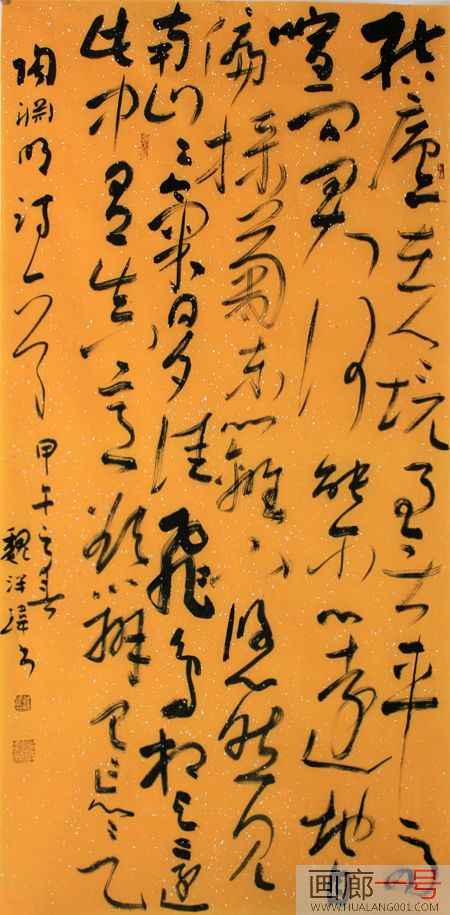 结廬在人境而无車馬
喧问君何能尔心遠地自
偏採菊东籬下悠然见
南山〻氣日夕佳飛鳥相与還
此中有真意欲辨已忘言
陶渊明诗一首 甲午之春
魏洋瑋书
画廊一号
WWW.HUALANG001.COM